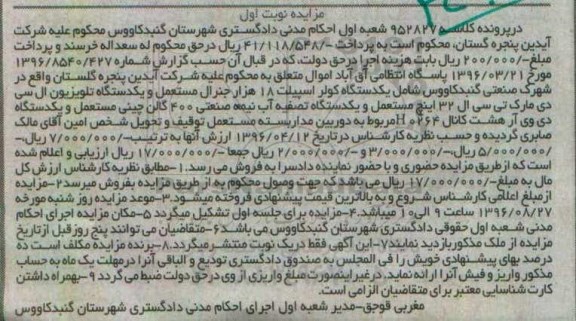 مزایده نوبت اول
درپرونده کلاسه ۹۵۲۸۲۷ شعبه اول احکام مدنی دادگستری شهرستان گنبدکاووس محکوم علیه شرکت
آیدین پنجره گستان، محکوم است به پرداخت -/۴۱/۱۱۸/۵۴۸ ریال درحق محکوم له سعداله خرسند و پرداخت
مبلغ-/۲۰۰/۰۰۰ ریال بابت هزینه اجرا درحق دولت، که در قبال آن حسب گزارش شماره ۱۳۹۶/۸۵۴۰/۴۲۷
مورخ ۱۳۹۶/۰۳/۲۱ پاسگاه انتظامی آق آباد اموال متعلق به محکوم علیه شرکت آیدین پنجره گلستان واقع در
شهرک صنعتی گنبدکاووس شامل یکدستگاه کولر اسپیلت ۱۸ هزار جنرال مستعمل و یکدستگاه تلویزیون ال سی
دی مارک تی سی ال ۳۲ اینچ مستعمل و یکدستگاه تصفیه آب نیمه صنعتی ۴۰۰ گالن چینی مستعمل و یکدستگاه
دی وی آر هشت کانال H۰۲۶۴ مربوط به دوربین مداربسته مستعمل توقیف و تحویل شخص امین آقای مالک
صابری گردیده و حسب نظریه کارشناس درتاریخ ۱۳۹۶/۰۴/۱۲ ارزش آنها به ترتیب-/۷/۰۰۰/۰۰۰ ریال،-
/۵/۰۰۰/۰۰۰ ریال،-/۳/۰۰۰/۰۰۰ و -/۲/۰۰۰/۰۰۰ ریال جمعا -/۱۷/۰۰۰/۰۰۰ ریال ارزیابی و اعلام شده
است که ازطریق مزایده حضوری و با حضور نماینده دادسرا به فروش می رسد.۱-مطابق نظریه کارشناس ارزش کل
مال به مبلغ-/۱۷/۰۰۰/۰۰۰ ریال می باشد که جهت وصول محکوم به از طریق مزایده بفروش میرسد ۲-مزایده
ازمبلغ اعلامی کارشناس شروع و به بالاترین قیمت پیشنهادی فروخته میشود.۳-موعد مزایده روز شنبه مورخه
۱۳۹۶/۰۸/۲۷ ساعت ۹ الی۱۰ میباشد.۴-مزایده برای جلسه اول تشکیل میگردد ۵-مکان مزایده اجرای احکام
مدنی شعبه اول حقوقی دادگستری شهرستان گنبدکاووس می باشد۶-متقاضیان می توانند پنج روزقبل ازتاریخ
مزایده از ملک مذکوربازدید نمایند۷-این آگهی فقط دریک نوبت منتشرمیگردد.۸-برنده مزایده مکلف است ده
درصد بهای پیشنهادی خویش را فی المجلس به صندوق دادگستری تودیع و الباقی آنرا درمهلت یک ماه به حساب
مذکور واریز و فیش آنرا ارائه نماید.درغیر اینصورت مبلغ واریزی از وی درحق دولت ضبط می گردد ۹-بهمراه داشتن
کارت شناسایی معتبر برای متقاضیان الزامی است.
مغربی قوجق-مدیر شعبه اول اجرای احکام مدنی دادگستری شهرستان گنبدکاووس